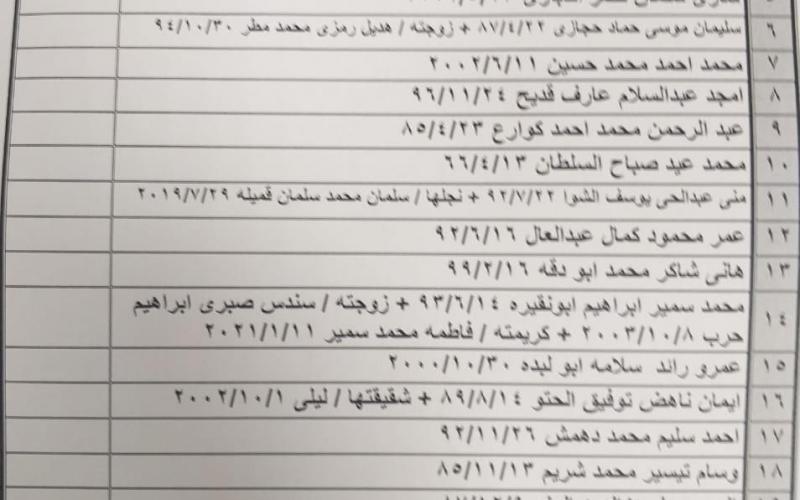 ٦ سليمان موسى حماد حجازى ٨٧/٤/٢٢ + زوجته / هديل رمزى محمد مطر ٩٤/١٠/٣٠
٧ محمد احمد محمد حسين ٢٠٠٢/٦/١١
٨ امجد عبدالسلام عارف قديح ٩٦/١١/٢٤
٩ عبد الرحمن محمد احمد كوارع ٨٥/٤/٢٣
١٠ محمد عيد صباح السلطان ٦٦/٤/١٣
١١ منى عبدالحى يوسف الشوا ٩٢/٧/٢٢ + نجلها / سلمان محمد سلمان قميله ٢٠١٩/٧/٢٩
١٢ عمر محمود كمال عبدالعال ٩٢/٦/١٦
١٣ هانى شاكر محمد ابو دقه ٩٩/٢/١٦
١٤ محمد سمير ابراهيم ابونقيره ٩٣/٦/١٤ + زوجته / سندس صبرى ابراهيم
حرب ٢٠٠٣/١٠/٨ + كريمته / فاطمه محمد سمير ٢٠٢١/١/١١
١٥ عمرو رائد سلامه ابو لبده ٢٠٠٠/١٠/٣٠
١٦ ايمان ناهض توفيق الحتو ٨٩/٨/١٤ + شقيقتها / ليلى ٢٠٠٢/١٠/١
١٧ احمد سليم محمد دهمش ٩٢/١١/٢٦
١٨ وسام تيسير محمد شريم ٨٥/١١/١٣